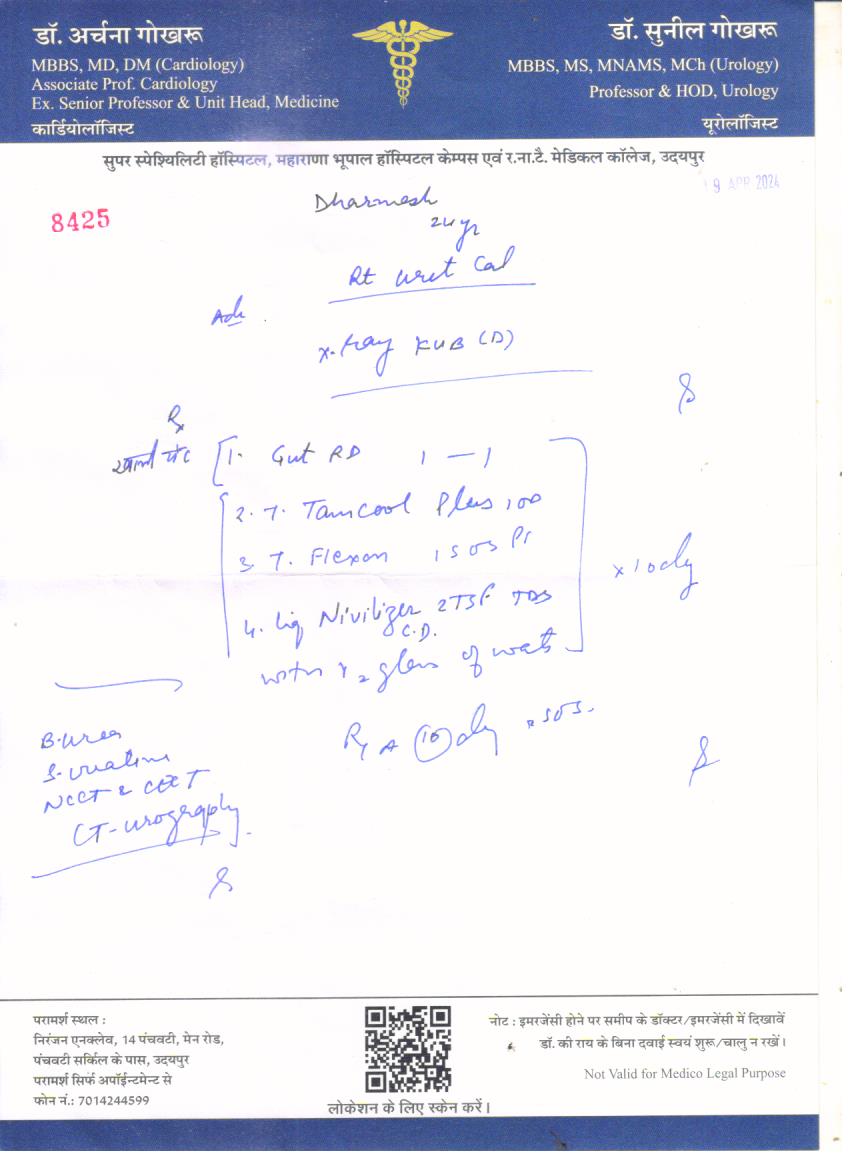 डॉ. अर्चना गोखरू
MBBS, MD, DM (Cardiology)
Associate Prof. Cardiology
Ex. Senior Professor & Unit Head, Medicine
कार्डियोलॉजिस्ट
डॉ. सुनील गोखरू
MBBS, MS, MNAMS, MCh (Urology)
Professor & HOD, Urology
यूरोलॉजिस्ट
सुपर स्पेश्यिलिटी हॉस्पिटल, महाराणा भूपाल हॉस्पिटल केम्पस एवं र.ना.टै. मेडिकल कॉलेज, उदयपुर
19 APR 2024
8425
Dharmesh
24 yr
Rt uret Cal
Adv
x-Ray KUB (D)
Rx
खाली पेट 1. Gut RD 1 — 1
2. T. Tamcool Plus 100
3. T. Flexon 1 SOS
4. Liq Nivilizer 2TSF TDS
C.D.
with 1/2 glass of water
x 10 day
R A (10) day SOS.
B. urea
S. creatinine
NCCT & CECT
CT-urography
परामर्श स्थल :
निरंजन एनक्लेव, 14 पंचवटी, मेन रोड,
पंचवटी सर्किल के पास, उदयपुर
परामर्श सिर्फ अपॉईन्टमेन्ट से
फोन नं.: 7014244599
लोकेशन के लिए स्केन करें।
नोट : इमरजेंसी होने पर समीप के डॉक्टर/इमरजेंसी में दिखावें
डॉ. की राय के बिना दवाई स्वयं शुरू/चालु न रखें।
Not Valid for Medico Legal Purpose